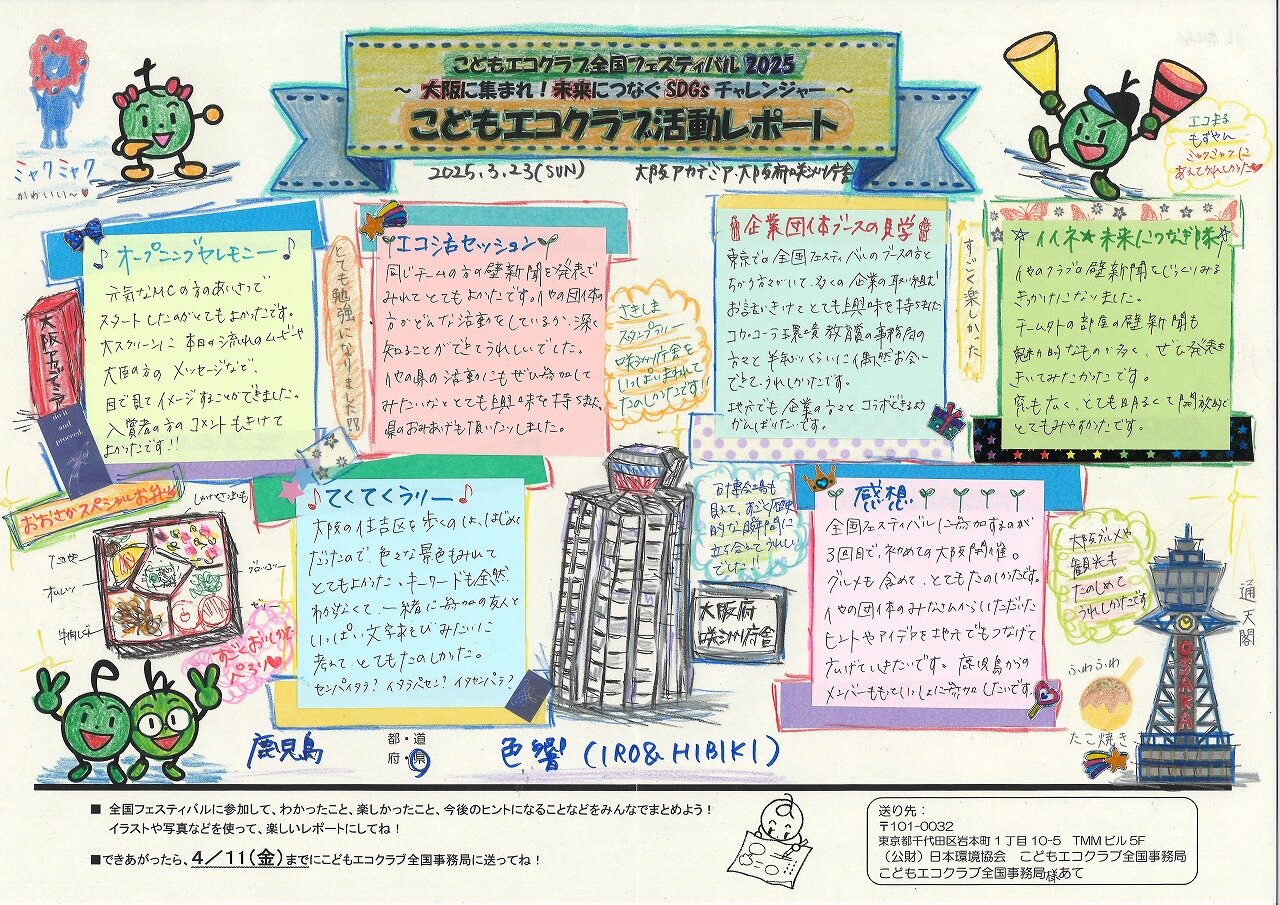 こどもエコクラブ全国フェスティバル 2025
～ 大阪に集まれ！未来につなぐ SDGs チャレンジャー ～
こどもエコクラブ活動レポート
2025.3.23(SUN) 大阪アカデミア・大阪府咲洲庁舎
ミャクミャク
かわいい～♥
エコまる
もずやん
ミャクミャクに
あえてうれしかった♥
♪オープニングセレモニー♪
元気なMCの方のあいさつで
スタートしたのがとてもよかったです。
大スクリーンに本日の流れのムービーや
大臣の方のメッセージなど、
目で見てイメージすることができました。
入賞者の方のコメントもきけて
よかったです!!
大阪アカデミア
とても勉強になりました!!
エコ活セッション
同じチームの方の壁新聞を発表で
みれてとてもよかったです。他の団体の
方がどんな活動をしているか、深く
知ることができてうれしいでした。
他の県の活動にもぜひ参加して
みたいなととても興味を持ちました。
県のおみやげも頂いたりしました。
さきしま
スタンプラリー
咲洲庁舎を
いっぱいまわれて
たのしかったです!!
企業団体ブースの見学
東京での全国フェスティバルのブースの方と
ちがう方々がいて、多くの企業の取り組みを
お話いきけてとても興味を持ちました
コカ・コーラ環境教育賞の事務局の
方々と半年ぶりくらいに偶然お会い
できてうれしかったです。
地元でも企業の方々とコラボできるよう
がんばりたいです。
すごく楽しかった
☆イイネ★未来につなぎ隊☆
他のクラブの壁新聞をじっくりみる
きっかけになりました。
チーム外の部屋の壁新聞も
魅力的なものが多く、ぜひ発表を
きいてみたかったです。
窓も広く、とても明るくて開放的で
とてもみやすかったです。
おおさかスペシャルお弁当
オムレツ
牛肉しぐれ
ブロッコリー
ゼリー
すごくおいしかった
ぺろり♥
♪てくてくラリー♪
大阪の住吉区を歩くのは、はじめて
だったので、色々な景色もみれて
とてもよかった。キーワードも全然
わからなくて、一緒に参加の友人と
いっぱい文字あそびみたいに
考えて、とてもたのしかった。
センパイタラ？イタラパセン？イタセンパラ？
万博会場も
見えて、すごく歴史
的な瞬間に
立ち会えてうれしい
でした!!
大阪府
咲洲庁舎
感想
全国フェスティバルに参加するのが
3回目で、初めての大阪開催。
グルメも含めて、とてもたのしかったです。
他の団体のみなさんからいただいた
ヒントやアイデアを地元でもつなげて
広げていきたいです。鹿児島からの
メンバーももっといっしょに参加したいです。
大阪グルメや
観光も
たのしめて
うれしかったです
ふわふわ
たこ焼き
通天閣
OSAKA
鹿児島 都・道
府・県
色響(IRO&HIBIKI)
■ 全国フェスティバルに参加して、わかったこと、楽しかったこと、今後のヒントになることなどをみんなでまとめよう！
イラストや写真などを使って、楽しいレポートにしてね！
■できあがったら、4／11(金)までにこどもエコクラブ全国事務局に送ってね！
送り先：
〒101-0032
東京都千代田区岩本町１丁目10-5 TMMビル5F
（公財）日本環境協会 こどもエコクラブ全国事務局
こどもエコクラブ全国事務局様あて